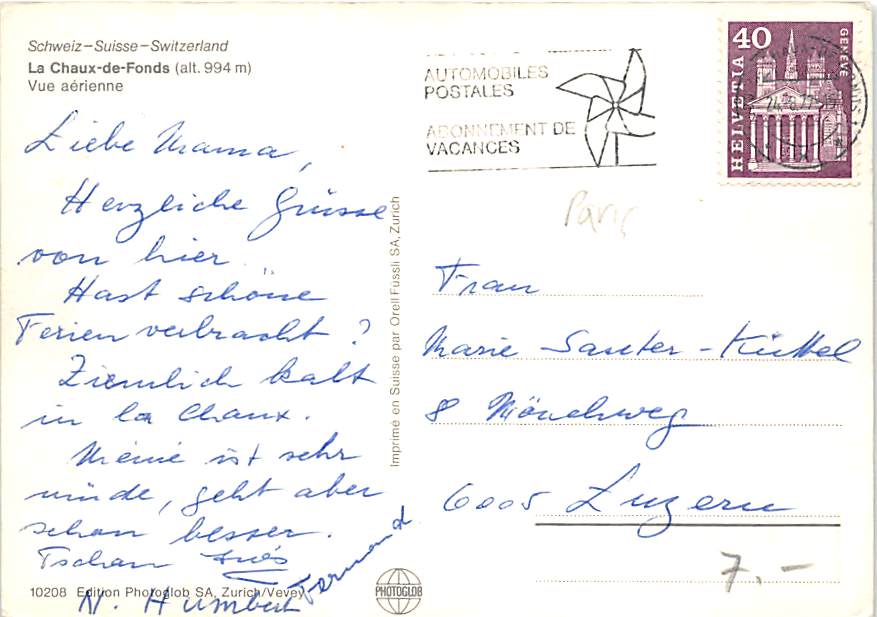 Schweiz–Suisse–Switzerland
La Chaux-de-Fonds (alt. 994 m)
Vue aérienne
Liebe Mama,
Herzliche Grüsse
von hier
Hast schöne
Ferien verbracht?
Ziemlich kalt
in la Chaux.
ist sehr
müde, geht aber
schon besser.
Tschau
Fernand
N. Humbert
10208 Edition Photoglob SA, Zurich/Vevey
Imprimé en Suisse par Orell Füssli SA, Zurich
AUTOMOBILES
POSTALES
ABONNEMENT DE
VACANCES
40
HELVETIA
GENÈVE
Paris
Frau
Marie Sauter-
8 Mönchweg
6005 Luzern
7.-
PHOTOGLOB